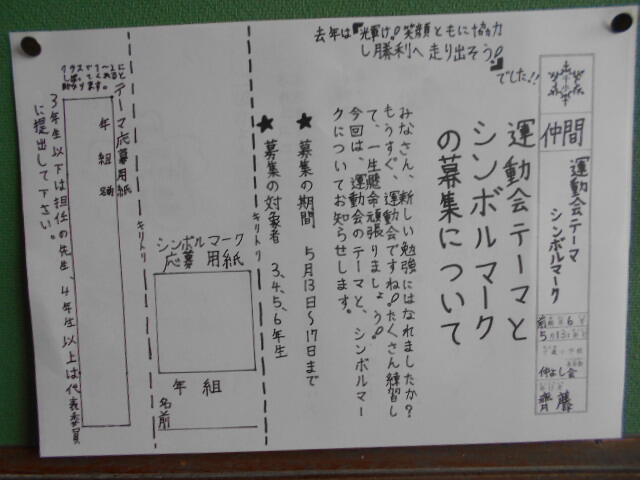 仲間
運動会テーマ
シンボルマーク
5月13日
仲よし会
齊藤
去年は『光輝け!笑顔ともに協力
し勝利へ走り出そう!』
でした!!
運動会テーマと
シンボルマーク
の募集について
みなさん、新しい勉強にはなれましたか?
もうすぐ、運動会ですね!たくさん練習し
て、一生懸命頑張りましょう!
今回は、運動会のテーマと、シンボルマー
クについてお知らせします。
★募集の期間 5月13日〜17日まで
★募集の対象者 3,4,5,6年生
キリトリ
シンボルマーク
応募用紙
年 組
名前
キリトリ
テーマ応募用紙
年 組 名前
3年生以下は担任の先生、4年生以上は代表委員
に提出して下さい。